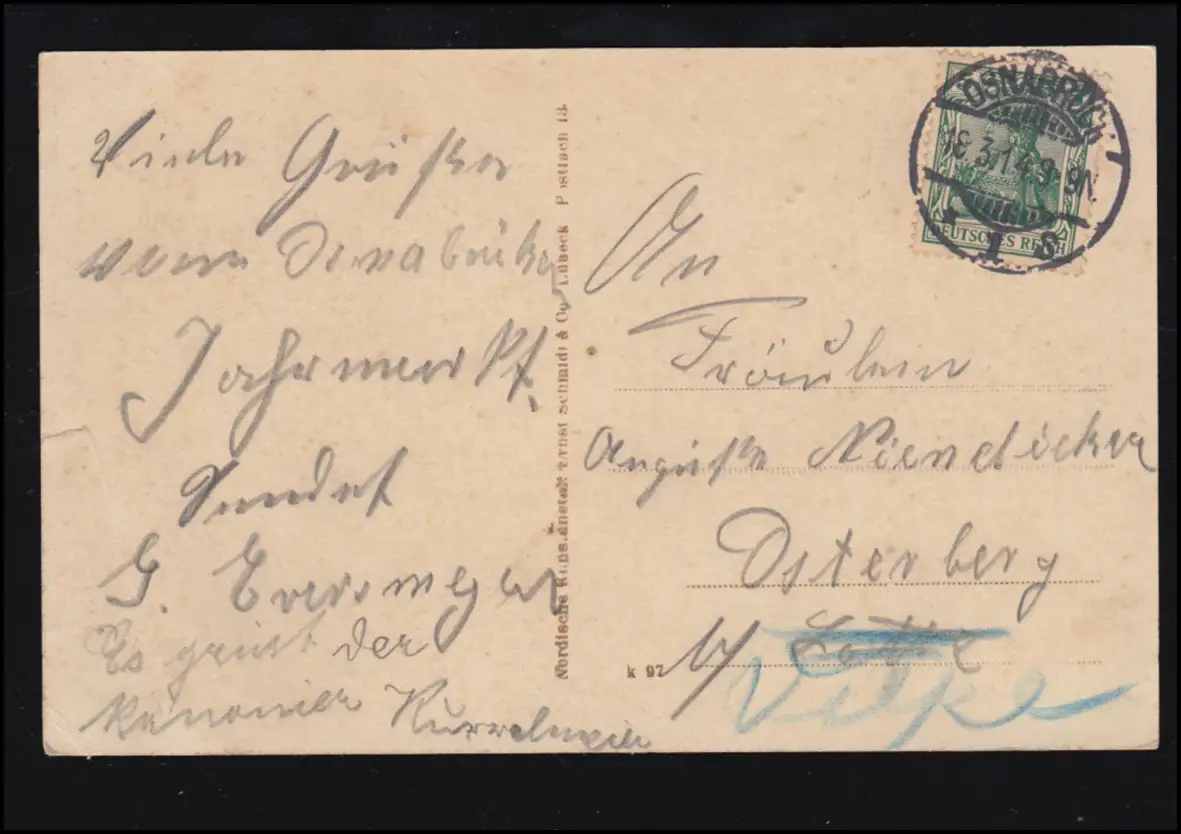 Viele Grüße
vom Osnabrücker
Jahrmarkt
Sendet
G. Eversmeyer
Es grüst der
Kanonier Kurrelmeier
Nordische Kunstanstalt Ernst Schmidt & Co. Lübeck Postfach 13.
k 97
OSNABRÜCK
18.3.14.9-9N.
* 1 S
DEUTSCHES REICH
An
Fräulein
Auguste Niendieker
Osterberg
b/ Lotte
Velpe